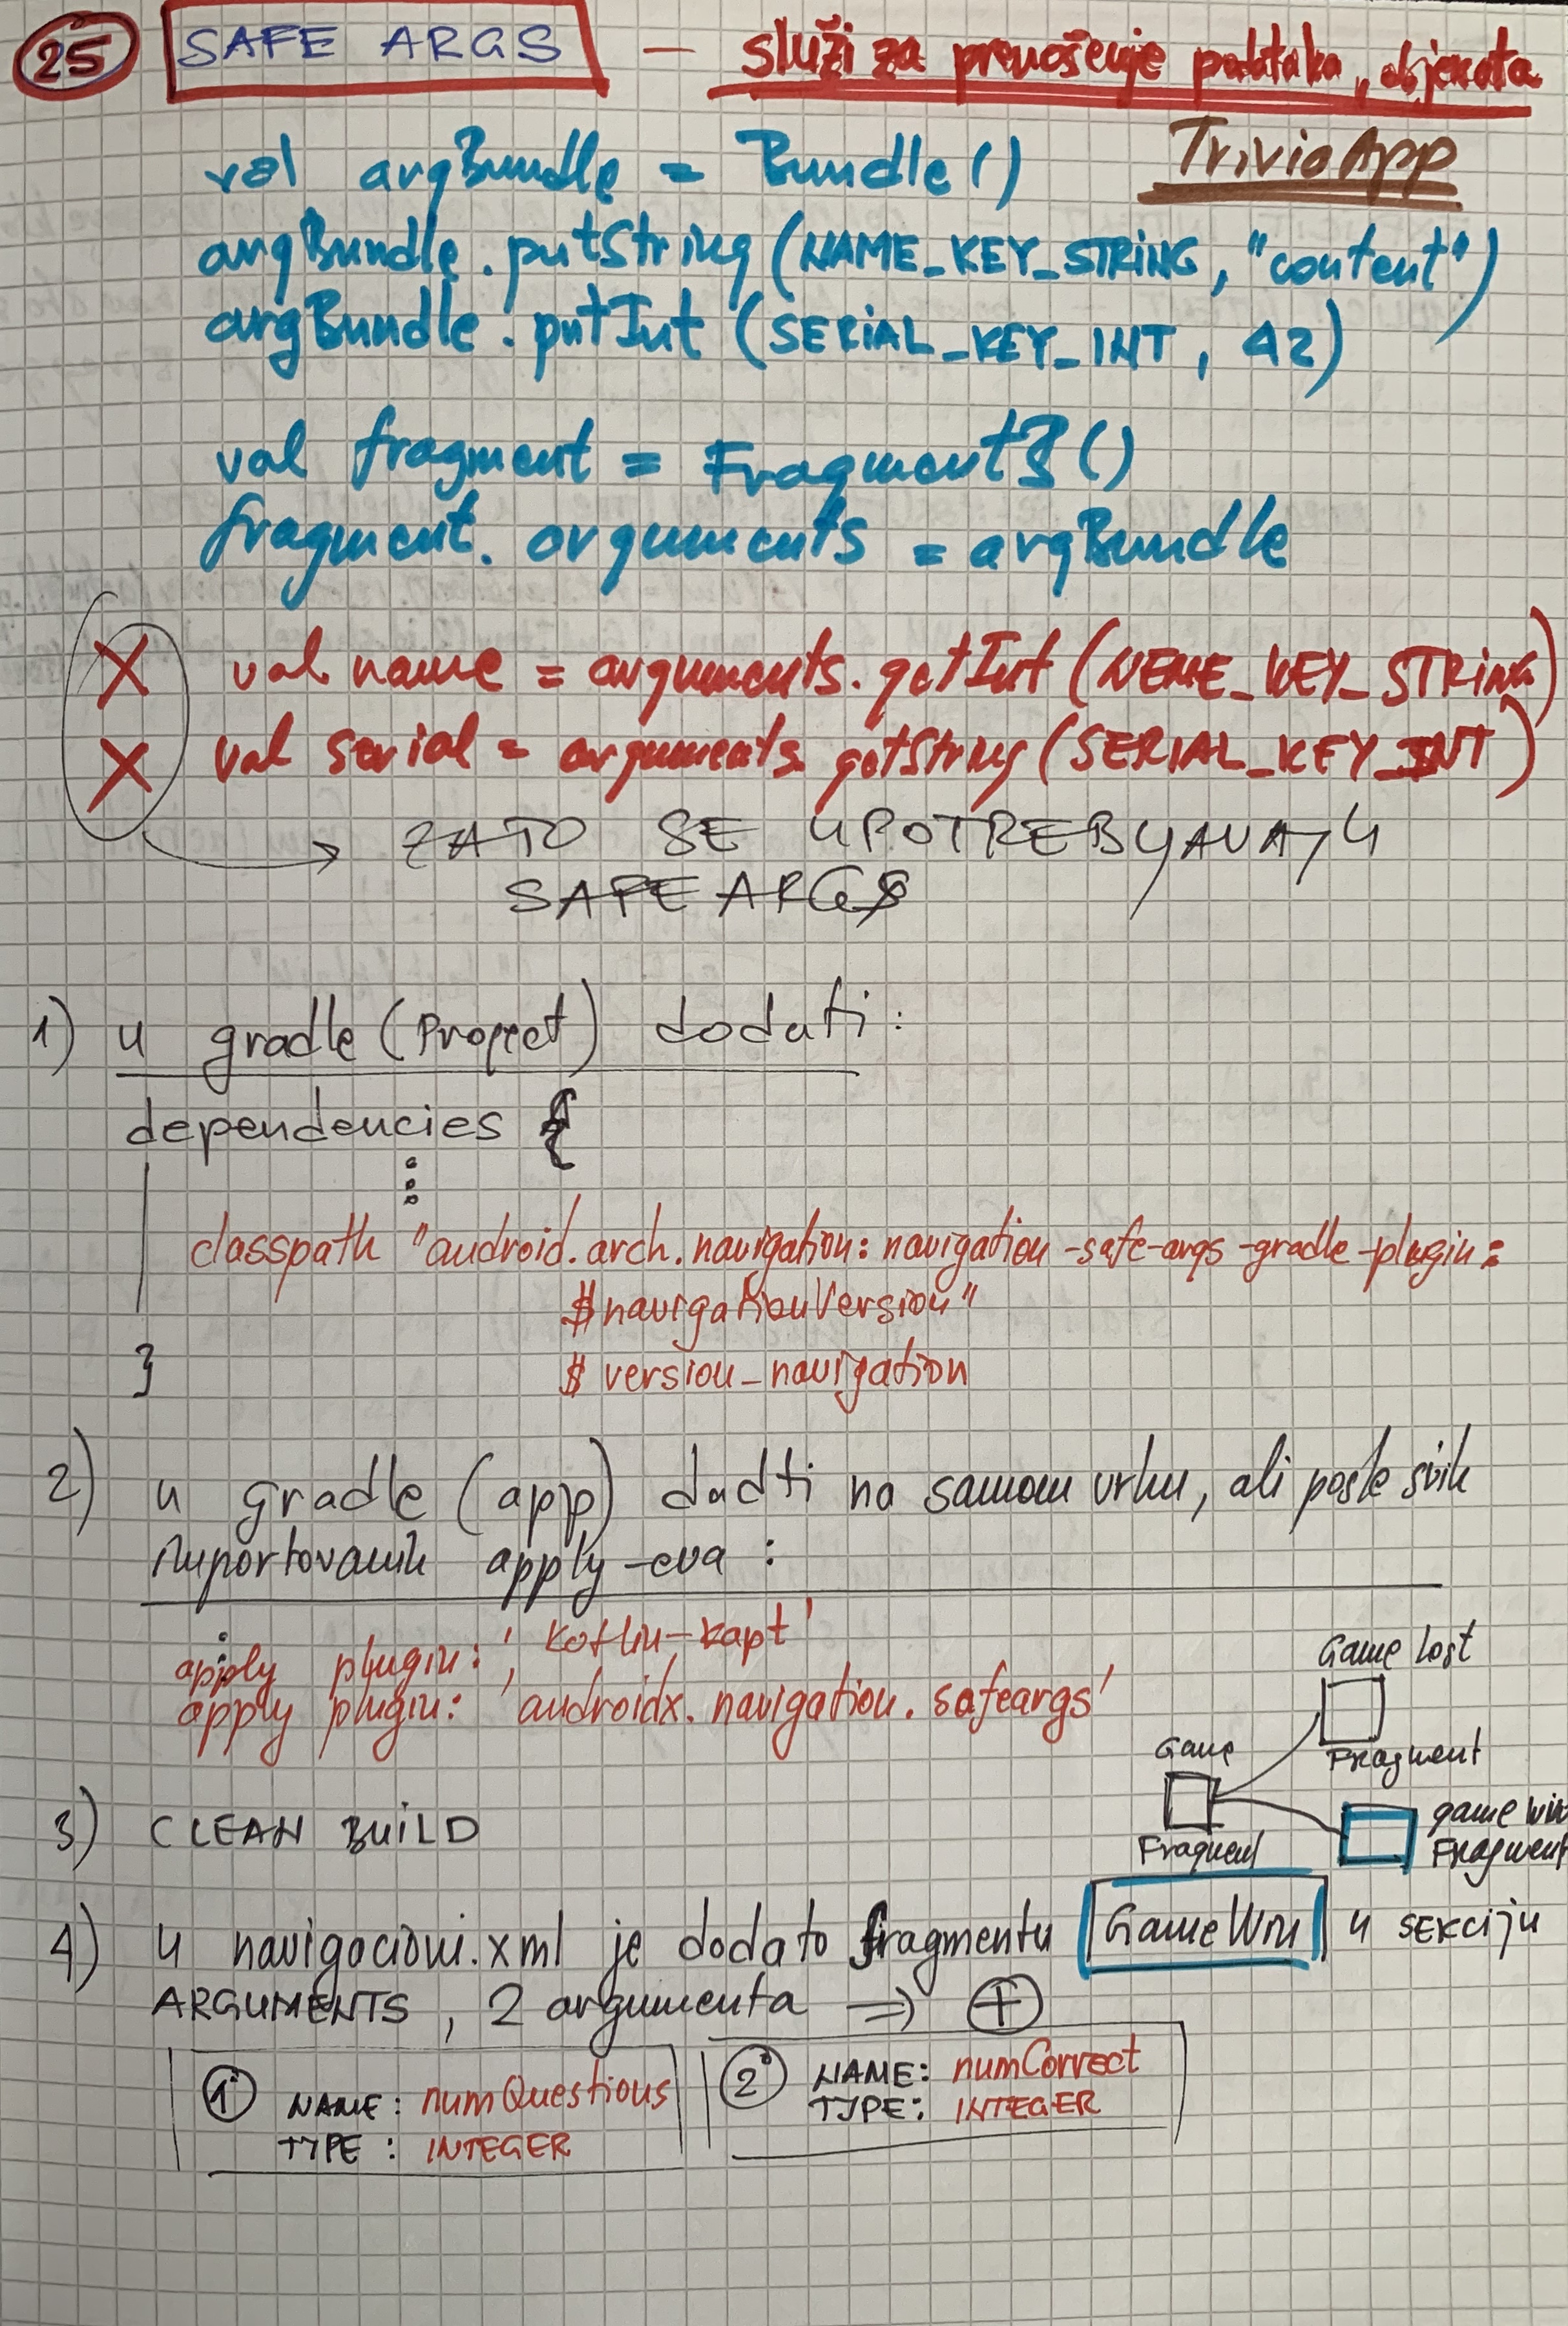 25 SAFE ARGS — služi za prenošenje podataka, objekata
TrivioApp
val argBundle = Bundle()
argBundle.putString (NAME_KEY_STRING, "content")
argBundle.putInt (SERIAL_KEY_INT, 42)
val fragment = FragmentB()
fragment.arguments = argBundle
X val name = arguments.getInt (NEME_KEY_STRING)
X val serial = arguments.getString (SERIAL_KEY_INT)
→ ZATO SE UPOTREBLJAVAJU
SAFE ARGS
1) u gradle (Project) dodati:
dependencies {
⋮
classpath "android.arch.navigation:navigation-safe-args-gradle-plugin:
$navigationVersion"
$version_navigation
}
2) u gradle (app) dadti na samom vrhu, ali posle svih
importovanih apply-eva :
apply plugin: 'kotlin-kapt'
apply plugin: 'androidx.navigation.safeargs'
Game Lost
Fragment
Game
Fragment
game win
Fragment
3) CLEAN BUILD
4) u navigacioni.xml je dodato fragmentu GameWin u SEKCIJU
ARGUMENTS, 2 argumenta ⇒ +
1° NAME: numQuestions
TYPE : INTEGER
2° NAME: numCorrect
TYPE: INTEGER